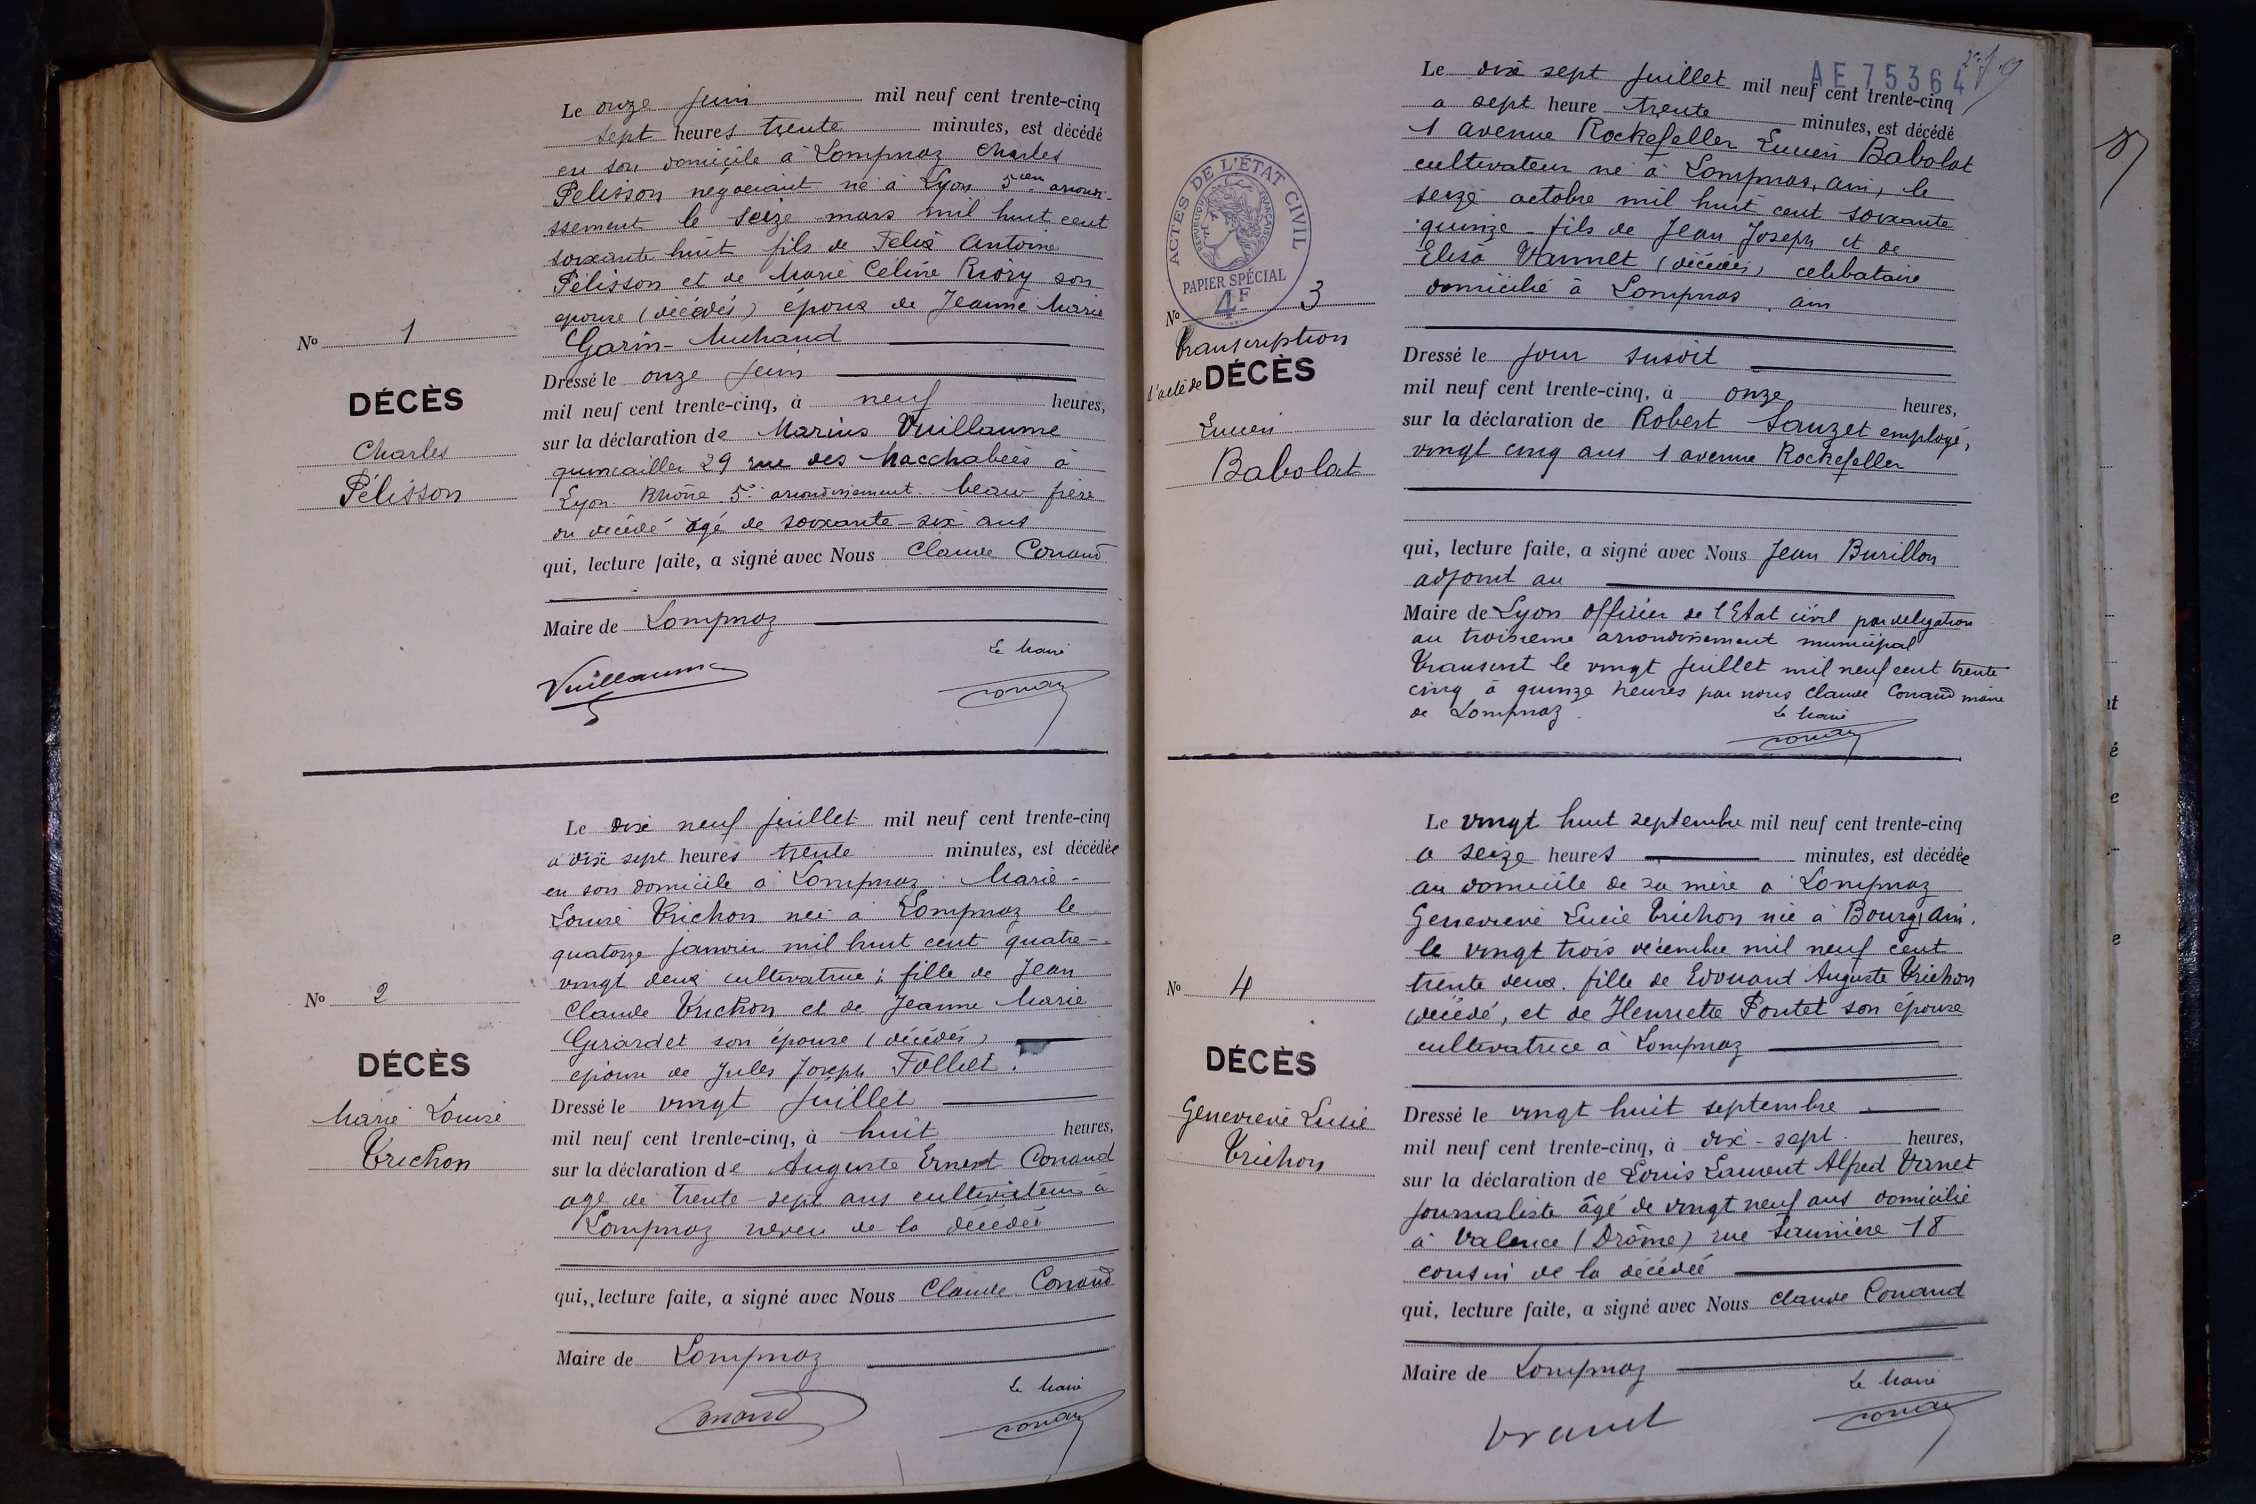 Le onze juin mil neuf cent trente-cinq
sept heures trente minutes, est décédé
en son domicile à Lompnaz Charles
Pélisson négociant né à Lyon 5ème arrondi-
ssement le seize mars mil huit cent
soixante huit fils de Félix Antoine
Pélisson et de Marie Celine Riory son
épouse (décédés) époux de Jeanne Marie
Garin-Michaud
No 1
DÉCÈS
Charles
Pélisson
Dressé le onze juin
mil neuf cent trente-cinq, à neuf heures,
sur la déclaration de Marius Vuillaume
quincailler 29 rue des Macchabées à
Lyon Rhône 5e arrondissement beau frère
du décédé âgé de soixante-six ans
qui, lecture faite, a signé avec Nous Claude Conand
Maire de Lompnaz
Le Maire
Vuillaume
Conand
Le dix neuf juillet mil neuf cent trente-cinq
à dix sept heures trente minutes, est décédée
en son domicile à Lompnaz Marie-
Louise Trichon née à Lompnaz le
quatorze janvier mil huit cent quatre-
vingt deux cultivatrice; fille de Jean
Claude Trichon et de Jeanne Marie
Girardet son épouse (décédés)
épouse de Jules Joseph Follet.
No 2
DÉCÈS
Marie Louise
Trichon
Dressé le vingt juillet
mil neuf cent trente-cinq, à huit heures,
sur la déclaration de Auguste Ernest Conand
agé de trente-sept ans cultivateur à
Lompnaz neveu de la décédée
qui, lecture faite, a signé avec Nous Claude Conand
Maire de Lompnaz
Le Maire
Conand
Conand
AE 75364
Le dix sept juillet mil neuf cent trente-cinq
a sept heure trente minutes, est décédé
1 avenue Rockefeller Lucien Babolat
cultivateur né à Lompnas, ain, le
seize octobre mil huit cent soixante
quinze - fils de Jean Joseph et de
Elisa Vannet (décédés) celibataire
domicilié à Lompnas, ain
ACTES DE L'ÉTAT CIVIL
RÉPUBLIQUE FRANÇAISE
PAPIER SPÉCIAL
4F
No 3
Transcription
l'acte de DÉCÈS
Lucien
Babolat
Dressé le jour susdit
mil neuf cent trente-cinq, à onze heures,
sur la déclaration de Robert Sauzet employé,
vingt cinq ans 1 avenue Rockefeller
qui, lecture faite, a signé avec Nous Jean Burillon
adjoint au
Maire de Lyon officier de l'Etat civil par délégation
au troisieme arrondissement municipal
Transcrit le vingt juillet mil neuf cent trente
cinq à quinze heures par nous Claude Conand maire
de Lompnaz.
Le Maire
Conand
Le vingt huit septembre mil neuf cent trente-cinq
a seize heures minutes, est décédée
au domicile de sa mère a Lompnaz
Geneviève Lucie Trichon née à Bourg, Ain.
le vingt trois décembre mil neuf cent
trente deux. fille de Edouard Auguste Trichon
décédé, et de Henriette Pontet son épouse
cultivatrice à Lompnaz
No 4
DÉCÈS
Geneviève Lucie
Trichon
Dressé le vingt huit septembre
mil neuf cent trente-cinq, à dix-sept heures,
sur la déclaration de Louis Laurent Alfred Vranet
journaliste âgé de vingt neuf ans domicilié
à Valence (Drôme) rue Saunière 18
cousin de la décédée
qui, lecture faite, a signé avec Nous Claude Conand
Maire de Lompnaz
Le Maire
Conand